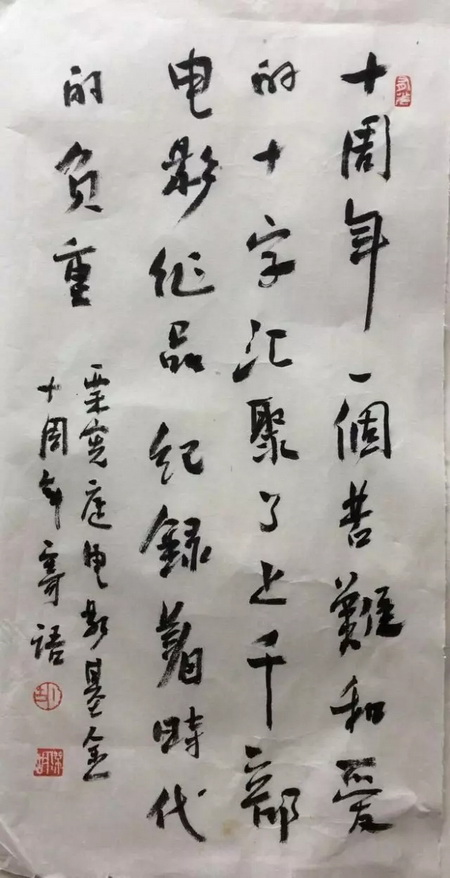 十周年一個苦難和愛
的十字汇聚了上千部
电影作品纪録着時代
的负重
栗宪庭电影基金
十周年寄语